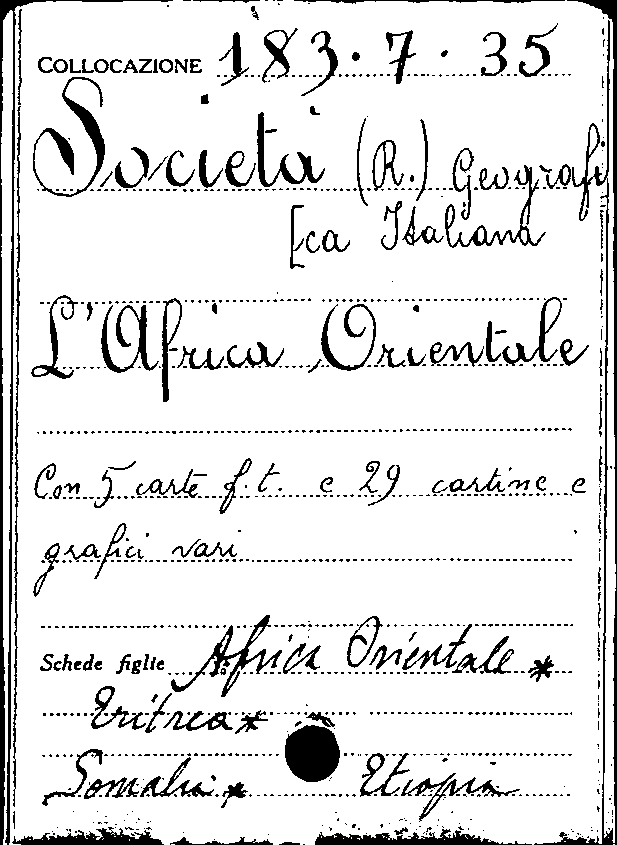 COLLOCAZIONE 183.7.35
Società (R.) Geografi
[ca Italiana
L'Africa Orientale
Con 5 carte f.t. e 29 cartine e
grafici vari
Schede figlie Africa Orientale *
Eritrea *
Somalia * Etiopia